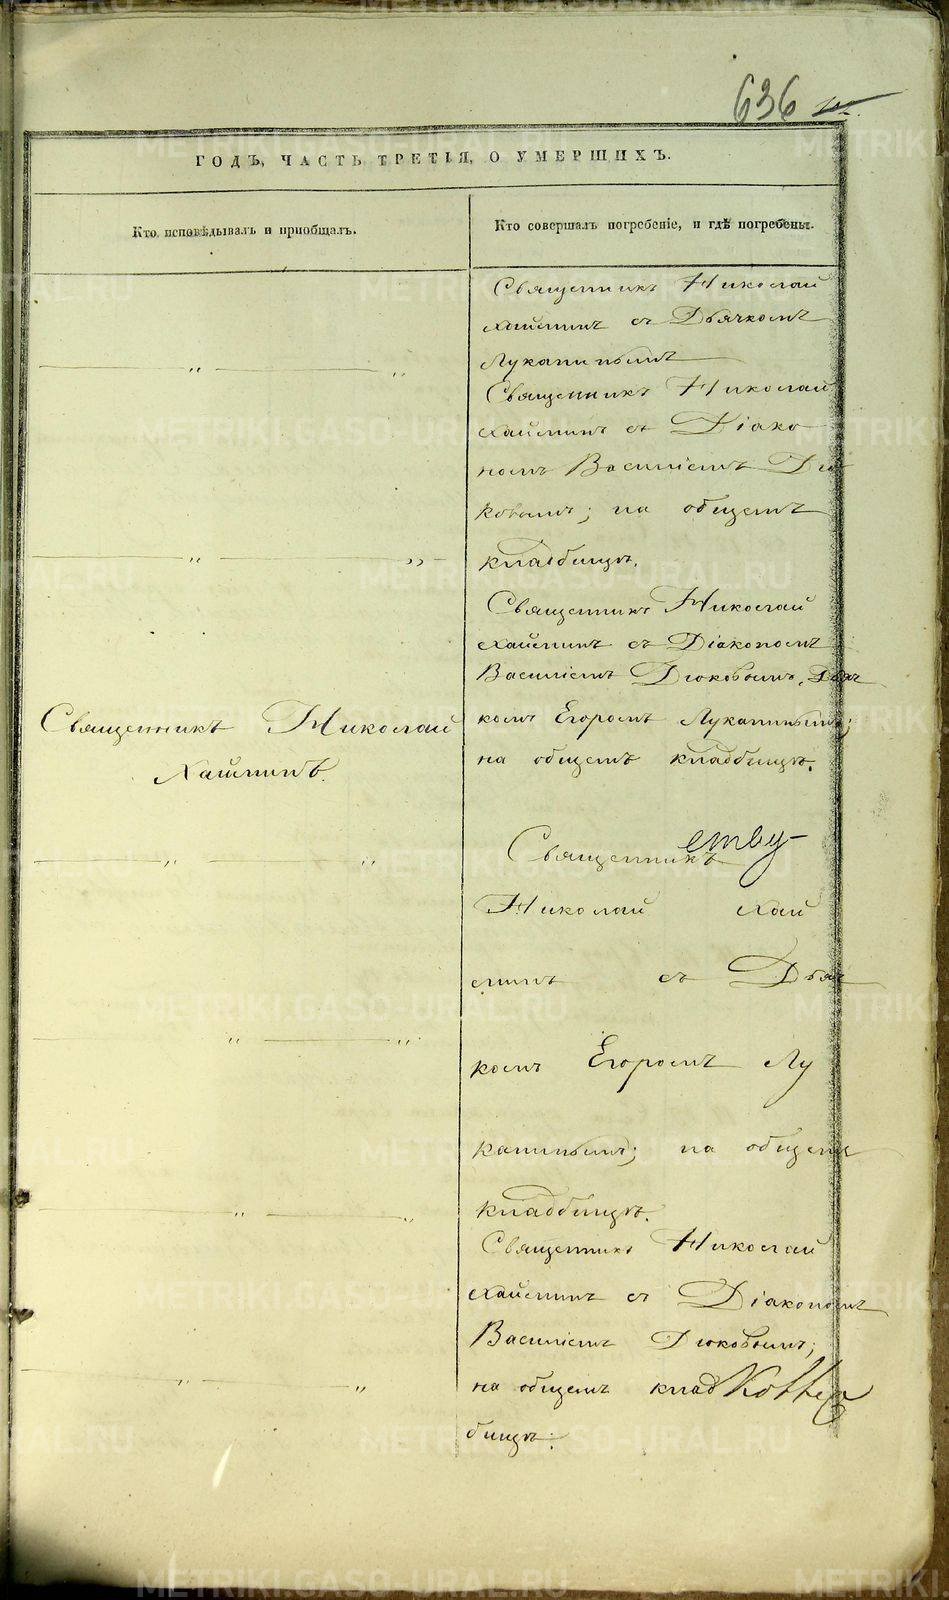 636
ГОДЪ, ЧАСТЬ ТРЕТІЯ, О УМЕРШИХЪ.
Кто исповѣдывалъ и пріобщалъ.
Кто совершалъ погребеніе, и гдѣ погребены.
Священникъ Николай
Хайминъ съ Дьячкомъ
Лукапинымъ
Священникъ Николай
Хайминъ съ Діако
номъ Василіемъ Дю
ковымъ; на общемъ
кладбищѣ.
Священникъ Николай
Хайминъ съ Діакономъ
Василіемъ Дюковымъ, Дьяч
комъ Егоромъ
на общемъ кладбищѣ.
Священникъ Николай
Хайминъ.
ству
Священникъ
Николай Хай
минъ съ Дьяч
комъ Егоромъ Лу
на общемъ
кладбищѣ.
Священникъ Николай
Хайминъ съ Діакономъ
Василіемъ Дюковымъ;
на общемъ клад
бищѣ.
METRIKI.GASO-URAL.RU